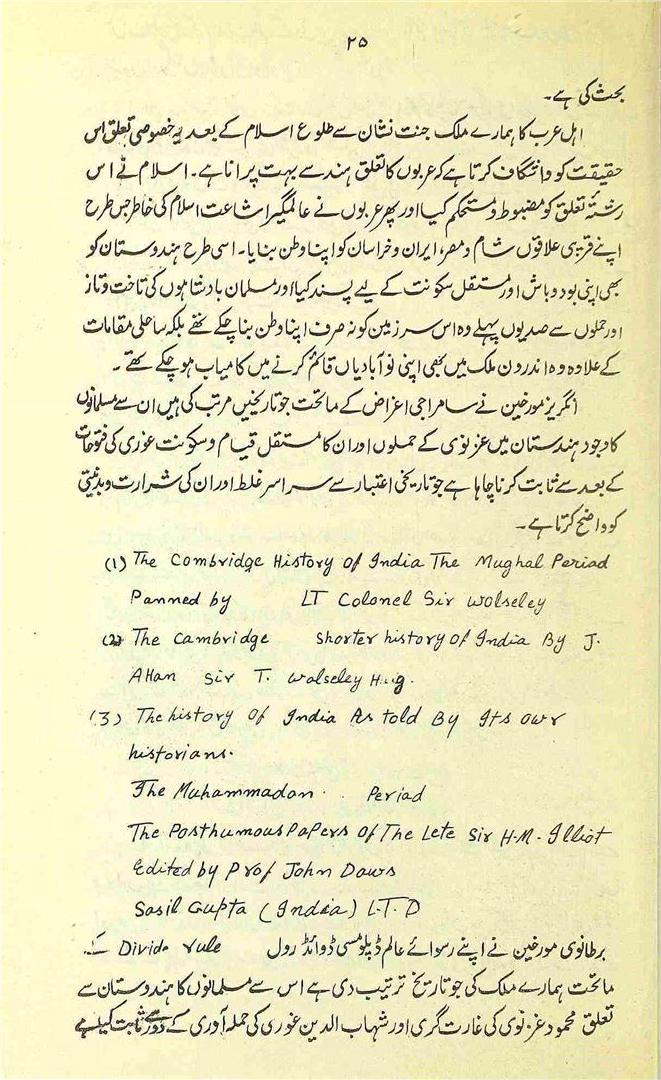 ۲۵
بحث کی ہے۔
اہل عرب کا ہمارے ملک جنت نشان سے طلوع اسلام کے بعد یہ خصوصی تعلق اس
حقیقت کو واشگاف کرتا ہے کہ عربوں کا تعلق ہند سے بہت پرانا ہے۔ اسلام نے اس
رشتۂ تعلق کو مضبوط و مستحکم کیا اور پھر عربوں نے عالمگیر اشاعت اسلام کی خاطر جس طرح
اپنے قریبی علاقوں شام و مصر، ایران و خراسان کو اپنا وطن بنایا۔ اسی طرح ہندوستان کو
بھی اپنی بود و باش اور مستقل سکونت کے لیے پسند کیا اور مسلمان بادشاہوں کی تاخت و تاز
اور حملوں سے صدیوں پہلے وہ اس سرزمین کو نہ صرف اپنا وطن بنا چکے تھے بلکہ ساحلی مقامات
کے علاوہ وہ اندرون ملک میں بھی اپنی نو آبادیاں قائم کرنے میں کامیاب ہو چکے تھے۔
انگریز مورخین نے سامراجی اغراض کے ماتحت جو تاریخیں مرتب کی ہیں ان سے مسلمانوں
کا وجود ہندستان میں غزنوی کے حملوں اور ان کا مستقل قیام و سکونت غوری کی فتوحات
کے بعد سے ثابت کرنا چاہا ہے جو تاریخی اعتبار سے سراسر غلط اور ان کی شرارت و بدنیتی
کو واضح کرتا ہے۔
(1) The Combridge History of India The Mughal Period
Panned by LT Colonel Sir Wolseley
(2) The Cambridge shorter history of India By J.
Allan Sir T. Wolseley Haig.
(3) The history Of India As told By Its owr
historians.
The Muhammadan Periad
The Posthumous Papers of The Lete Sir H.M. Illiot
Edited by Prof John Daws
Sasil Gupta (India) L.T.D
برطانوی مورخین نے اپنے رسوائے عالم ڈپلومسی ڈوائڈ رول Divide rule کے
ماتحت ہمارے ملک کی جو تاریخ ترتیب دی ہے اس سے مسلمانوں کا ہندوستان سے
تعلق محمود غزنوی کی غارت گری اور شہاب الدین غوری کی حملہ آوری کے دور سے ثابت کیا ہے